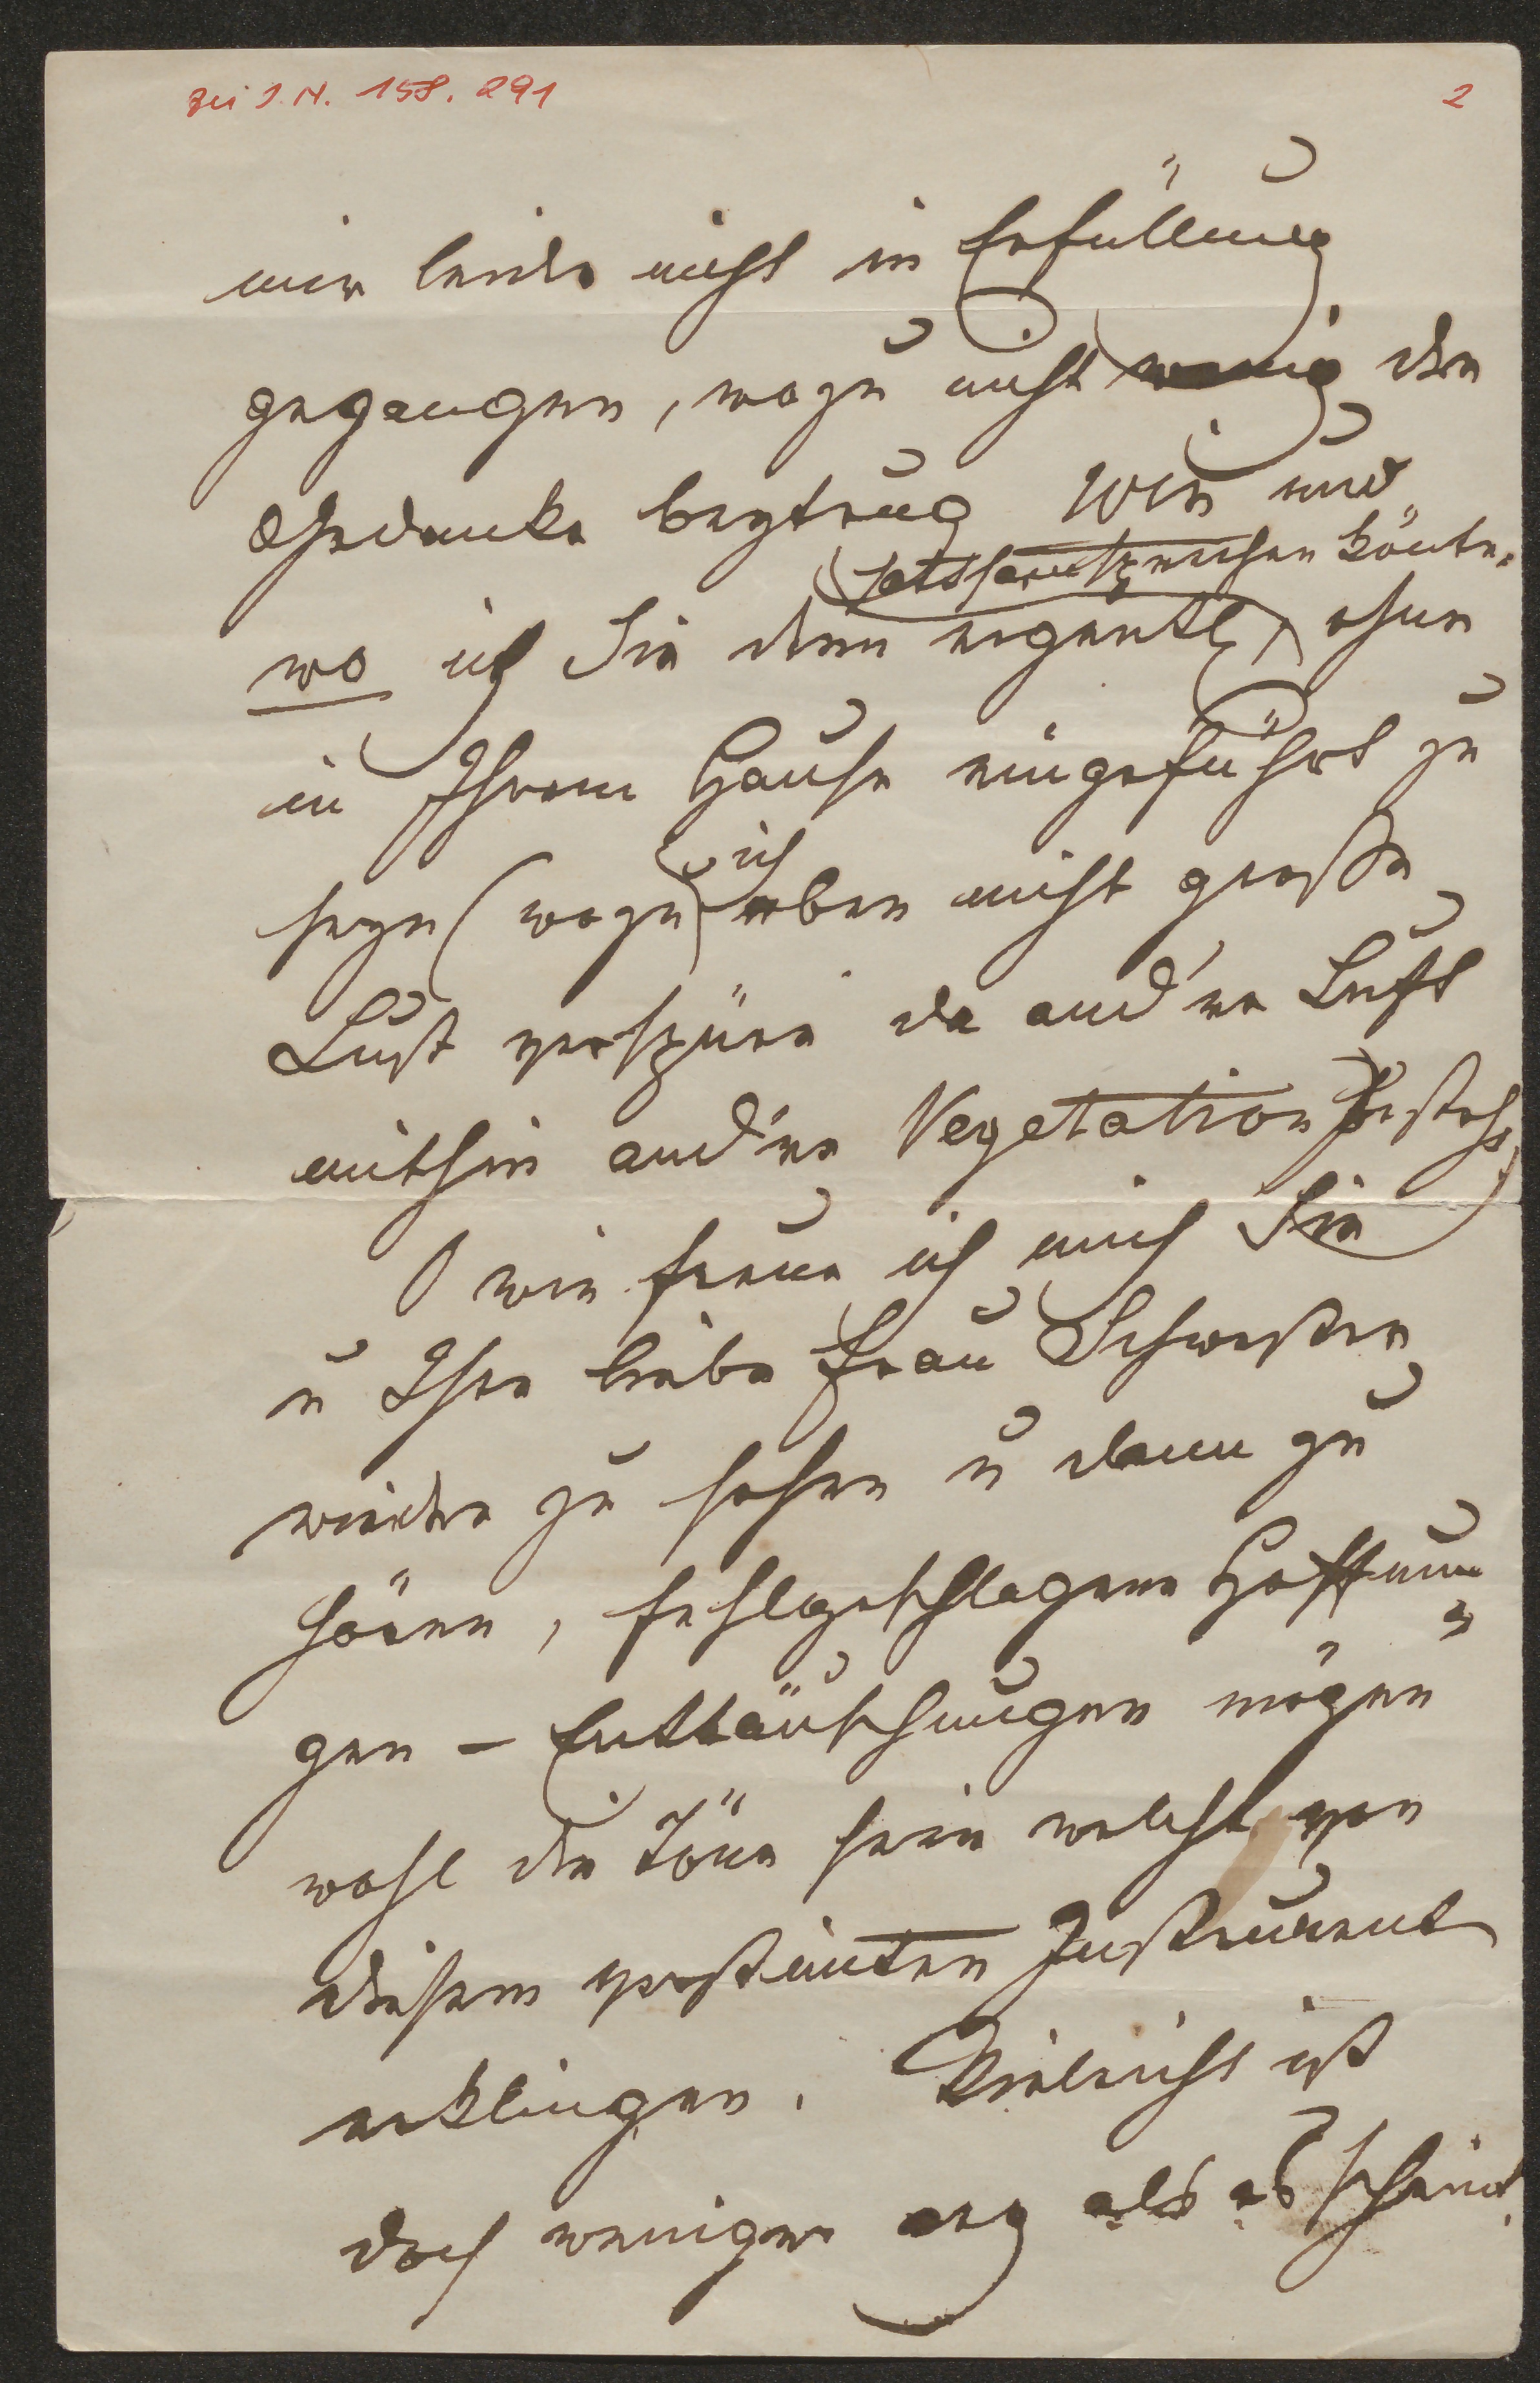 zu I.N. 158.291
2
mir leider nicht in Erfüllung
gegangen, wozu nicht wenig der
Gedanke beytrug wie und
sprechen könte
wo ich Sie denn eigentl, ohne
in Ihrem Hause eingeführt zu
seyn (wozu ich eben nicht große
Lust verspüre da and're Luft
mithin and're Vegetation) besteht,
O wie freue ich mich Sie
u Ihre liebe Frau Schwester
wieder zu sehen u dann zu
hören, fehlgeschlagene Hoffnun
gen – Enttäuschungen mögen
wohl die Töne sein welche von
diesem verstimten Instrument
erklingen. Vieleicht ist
doch weniger arg als es scheint.